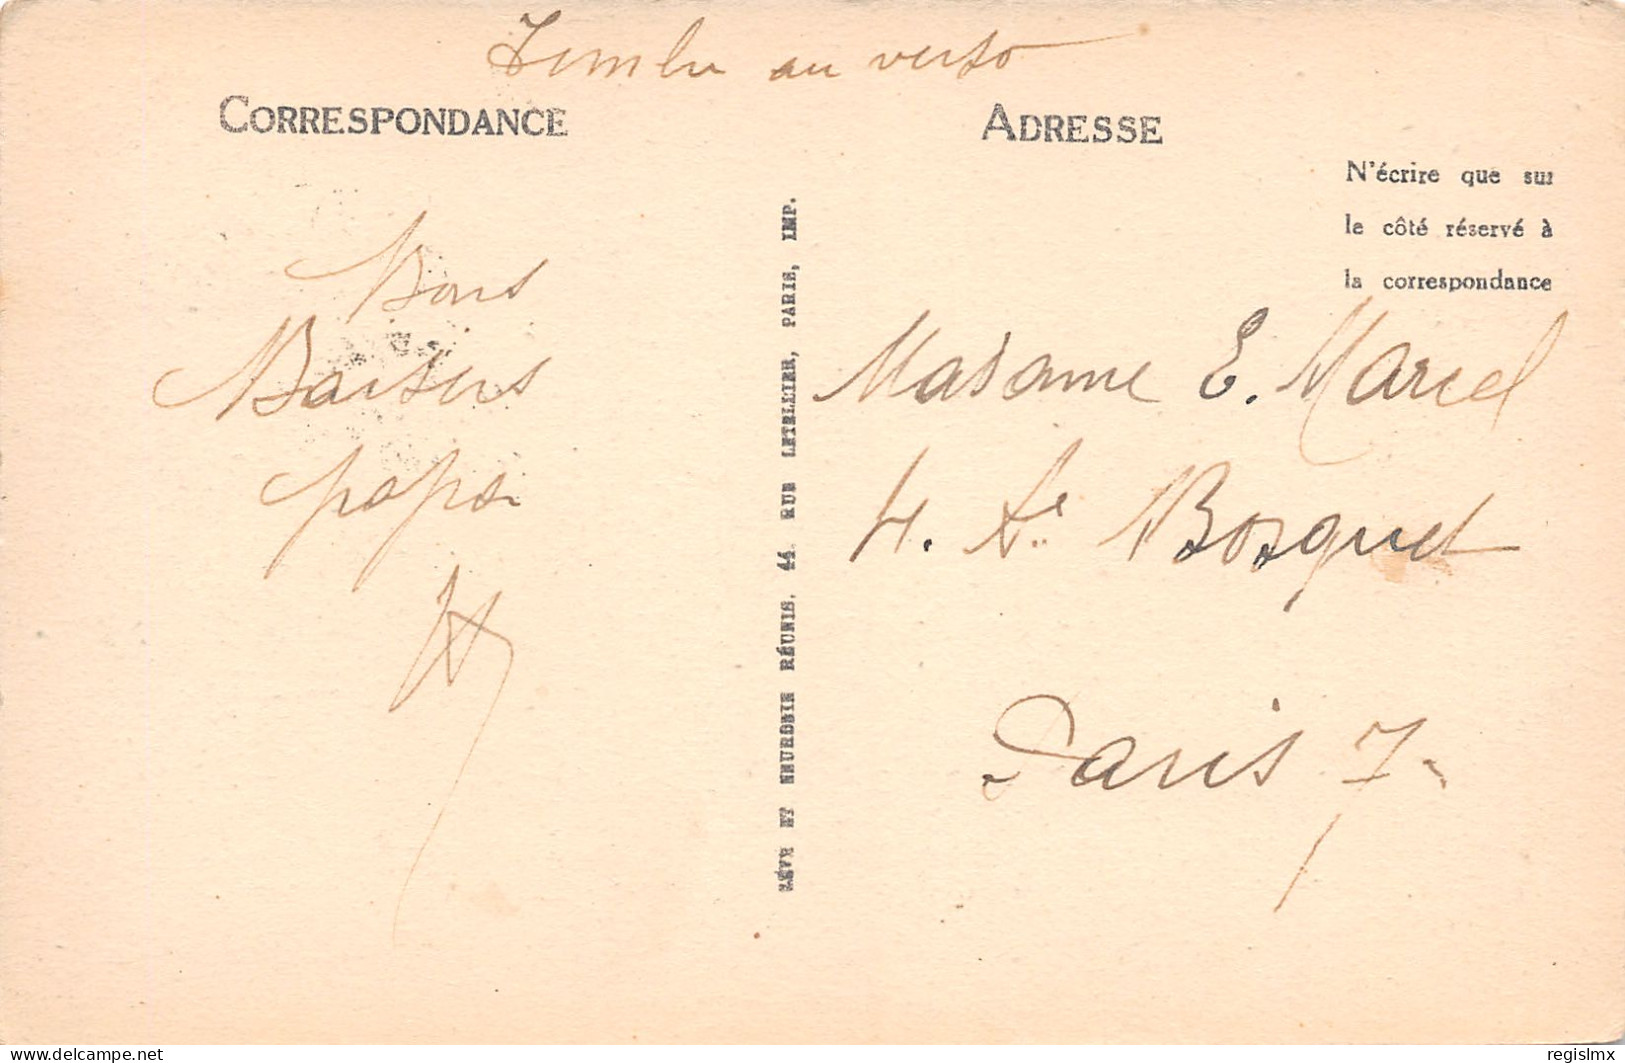 Timbre au verso
CORRESPONDANCE
ADRESSE
N'écrire que sur
le côté réservé à
la correspondance
Bons
Baisers
papa
LÉVY ET NEURDEIN RÉUNIS, 44, RUE LETELLIER, PARIS, IMP.
Madame E. Marcel
4. Av. Bosquet
Paris 7
www.delcampe.net
regislmx